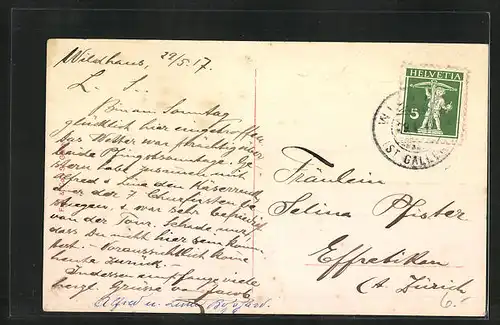 Wildhaus, 29/5.17.
L. S.
Bin am Sonntag
glücklich hier eingetroffen
das Wetter war prächtig über
beide Pfingstsonntage. Ge-
stern hab zusammen mit
Alfred & Lina den Käserruck
einer der 7 Churfirsten be-
stiegen, & war sehr befriedigt
von der Tour. Schade nur
dass Du nicht hier sein konn-
test. - Voraussichtlich keine
heute zurück. -
Indessen empfange viele
herzl. Grüsse von
Alfred u. Lina
HELVETIA
5
ST. GALLEN
Fräulein
Selina Pfister
Effretikon
Ct. Zürich